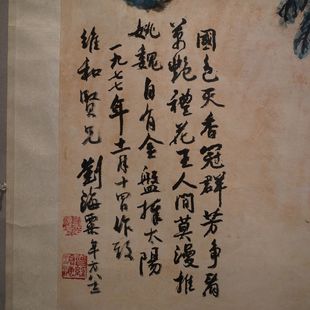 國色天香冠群芳爭看
萬艷禮花王人間莫漫推
姚魏自有金盤捧太陽
一九七七年十一月十四日作致
維和賢兄 劉海粟年方八